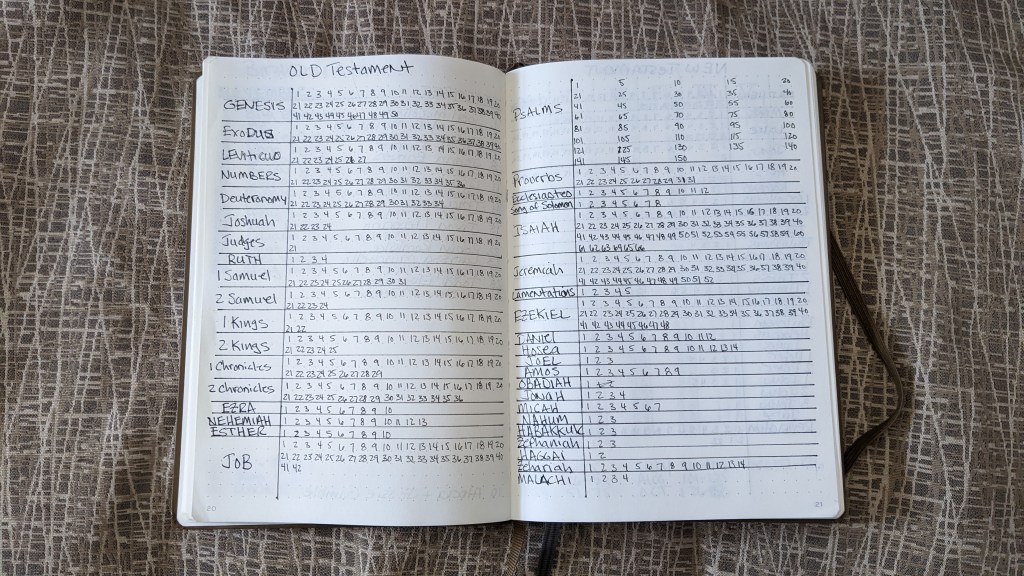 OLD Testament
GENESIS 1 2 3 4 5 6 7 8 9 10 11 12 13 14 15 16 17 18 19 20
21 22 23 24 25 26 27 28 29 30 31 32 33 34 35 36 37 38 39 40
41 42 43 44 45 46 47 48 49 50
EXODUS 1 2 3 4 5 6 7 8 9 10 11 12 13 14 15 16 17 18 19 20
21 22 23 24 25 26 27 28 29 30 31 32 33 34 35 36 37 38 39 40
Leviticus 1 2 3 4 5 6 7 8 9 10 11 12 13 14 15 16 17 18 19 20
21 22 23 24 25 26 27
NUMBERS 1 2 3 4 5 6 7 8 9 10 11 12 13 14 15 16 17 18 19 20
21 22 23 24 25 26 27 28 29 30 31 32 33 34 35 36
Deuteronomy 1 2 3 4 5 6 7 8 9 10 11 12 13 14 15 16 17 18 19 20
21 22 23 24 25 26 27 28 29 30 31 32 33 34
Joshuah 1 2 3 4 5 6 7 8 9 10 11 12 13 14 15 16 17 18 19 20
21 22 23 24
Judges 1 2 3 4 5 6 7 8 9 10 11 12 13 14 15 16 17 18 19 20
21
RUTH 1 2 3 4
1 Samuel 1 2 3 4 5 6 7 8 9 10 11 12 13 14 15 16 17 18 19 20
21 22 23 24 25 26 27 28 29 30 31
2 Samuel 1 2 3 4 5 6 7 8 9 10 11 12 13 14 15 16 17 18 19 20
21 22 23 24
1 Kings 1 2 3 4 5 6 7 8 9 10 11 12 13 14 15 16 17 18 19 20
21 22
2 Kings 1 2 3 4 5 6 7 8 9 10 11 12 13 14 15 16 17 18 19 20
21 22 23 24 25
1 Chronicles 1 2 3 4 5 6 7 8 9 10 11 12 13 14 15 16 17 18 19 20
21 22 23 24 25 26 27 28 29
2 Chronicles 1 2 3 4 5 6 7 8 9 10 11 12 13 14 15 16 17 18 19 20
21 22 23 24 25 26 27 28 29 30 31 32 33 34 35 36
EZRA 1 2 3 4 5 6 7 8 9 10
NEHEMIAH 1 2 3 4 5 6 7 8 9 10 11 12 13
ESTHER 1 2 3 4 5 6 7 8 9 10
JOB 1 2 3 4 5 6 7 8 9 10 11 12 13 14 15 16 17 18 19 20
21 22 23 24 25 26 27 28 29 30 31 32 33 34 35 36 37 38 39 40
41 42
20
PSALMS 1 5 10 15 20
21 25 30 35 40
41 45 50 55 60
61 65 70 75 80
81 85 90 95 100
101 105 110 115 120
121 125 130 135 140
141 145 150
Proverbs 1 2 3 4 5 6 7 8 9 10 11 12 13 14 15 16 17 18 19 20
21 22 23 24 25 26 27 28 29 30 31
Ecclesiastes 1 2 3 4 5 6 7 8 9 10 11 12
Song of Solomon 1 2 3 4 5 6 7 8
ISAIAH 1 2 3 4 5 6 7 8 9 10 11 12 13 14 15 16 17 18 19 20
21 22 23 24 25 26 27 28 29 30 31 32 33 34 35 36 37 38 39 40
41 42 43 44 45 46 47 48 49 50 51 52 53 54 55 56 57 58 59 60
61 62 63 64 65 66
Jeremiah 1 2 3 4 5 6 7 8 9 10 11 12 13 14 15 16 17 18 19 20
21 22 23 24 25 26 27 28 29 30 31 32 33 34 35 36 37 38 39 40
41 42 43 44 45 46 47 48 49 50 51 52
Lamentations 1 2 3 4 5
EZEKIEL 1 2 3 4 5 6 7 8 9 10 11 12 13 14 15 16 17 18 19 20
21 22 23 24 25 26 27 28 29 30 31 32 33 34 35 36 37 38 39 40
41 42 43 44 45 46 47 48
DANIEL 1 2 3 4 5 6 7 8 9 10 11 12
Hosea 1 2 3 4 5 6 7 8 9 10 11 12 13 14
JOEL 1 2 3
AMOS 1 2 3 4 5 6 7 8 9
OBADIAH 1
JONAH 1 2 3 4
MICAH 1 2 3 4 5 6 7
NAHUM 1 2 3
HABAKKUK 1 2 3
Zephaniah 1 2 3
HAGGAI 1 2
Zechariah 1 2 3 4 5 6 7 8 9 10 11 12 13 14
MALACHI 1 2 3 4
21